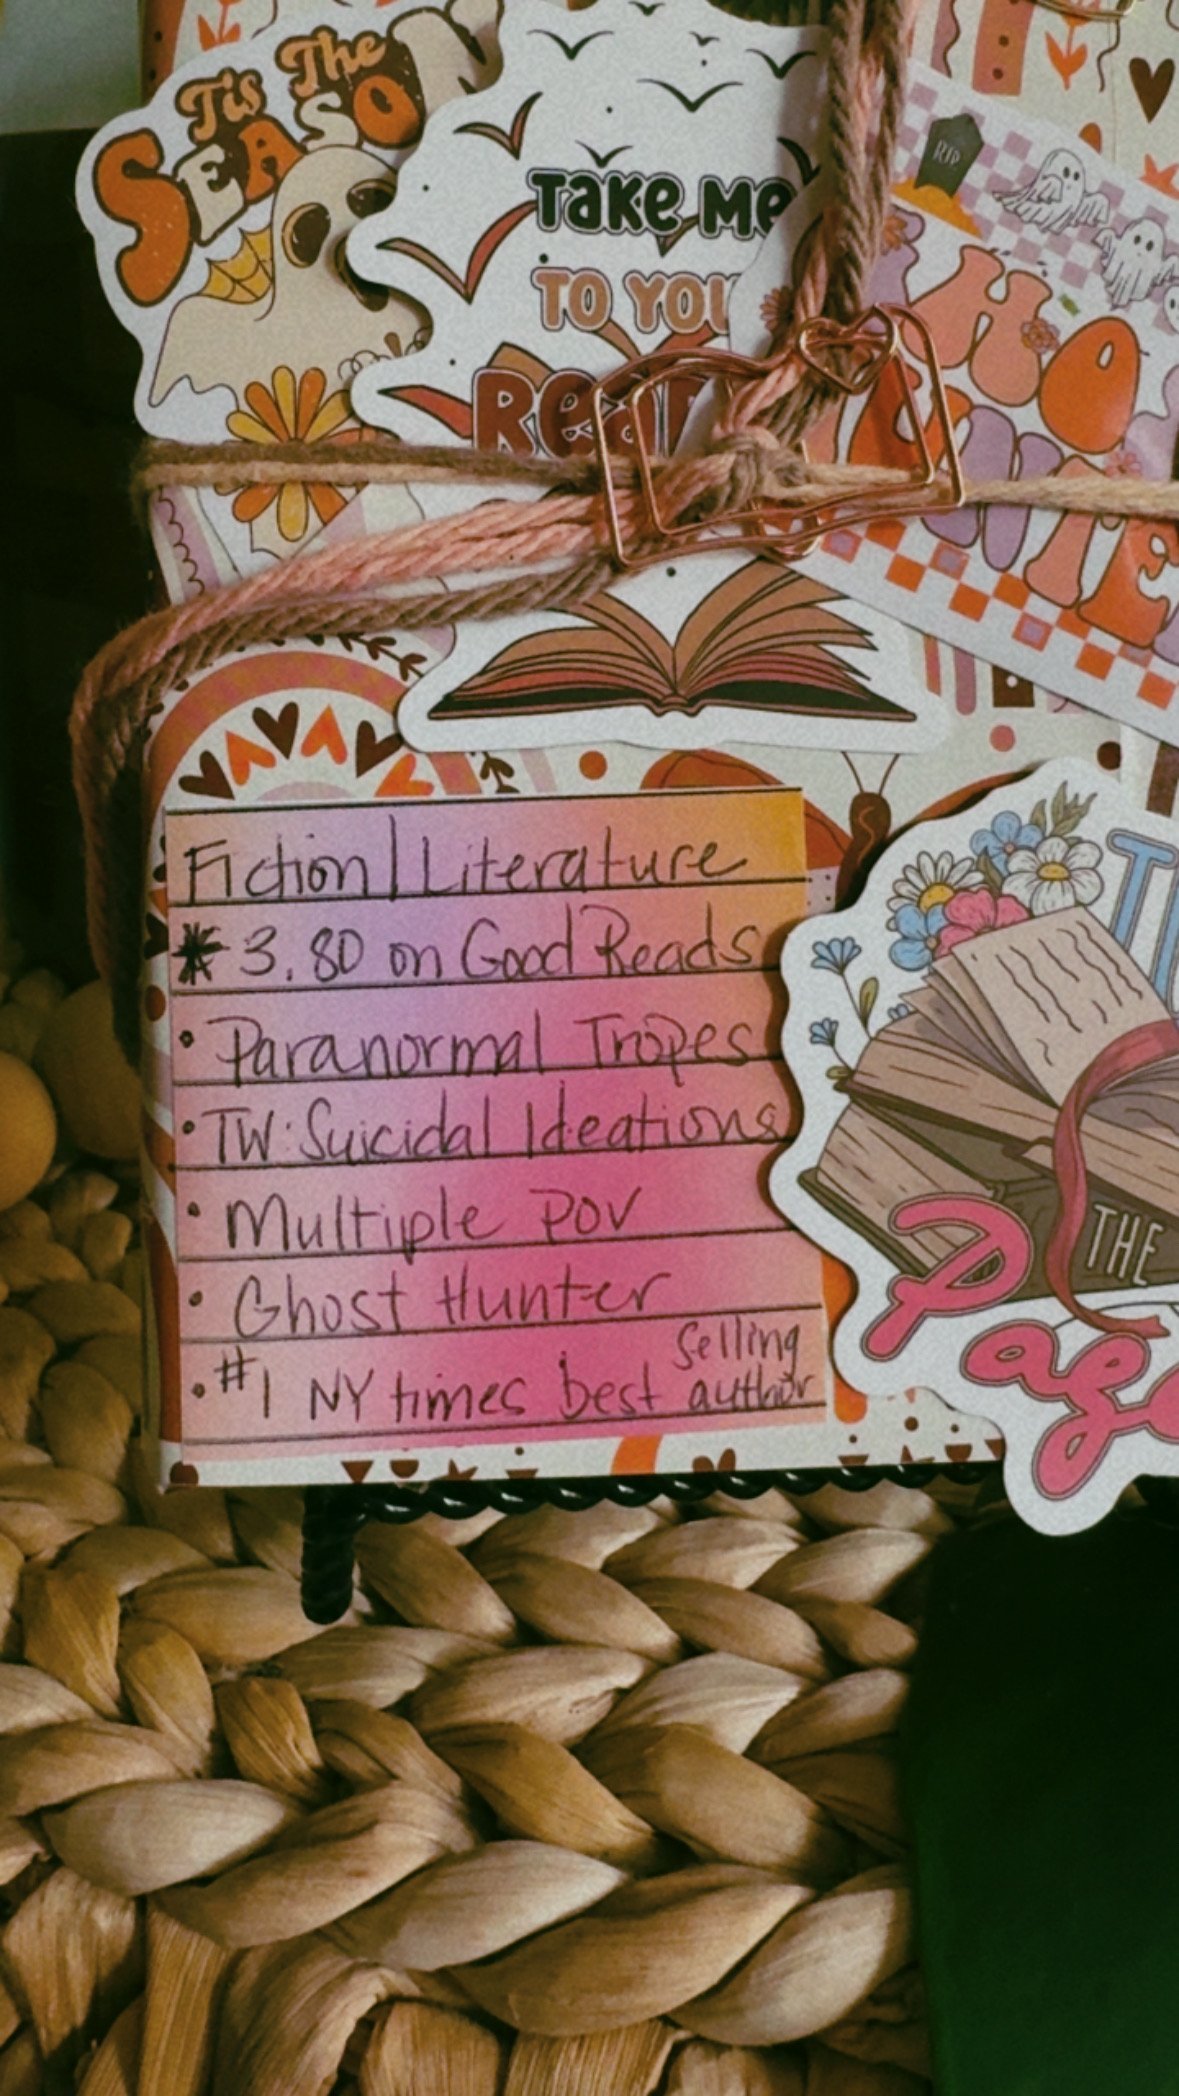 Tis The
SEASON
TAKE ME
TO YOU
READ
RIP
HO
Fiction/Literature
* 3.80 on Good Reads
• Paranormal Tropes
• TW: Suicidal Ideations
• Multiple POV
• Ghost Hunter
• #1 NY times best selling author
THE
Page